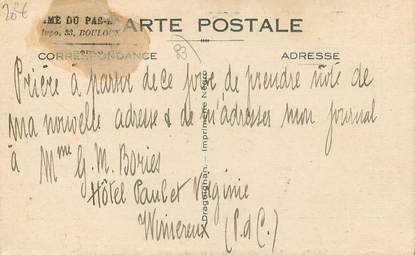 20€
ME DU PAS-
33, BOULOG
CARTE POSTALE
83
CORRESPONDANCE
ADRESSE
Prière à partir de ce jour de prendre note de
ma nouvelle adresse & de m'adresser mon journal
à Mme G. M. Bories
Hôtel Paul et Virginie
Wimereux (P. d C.)
Draguignan. - Imprimerie Négro